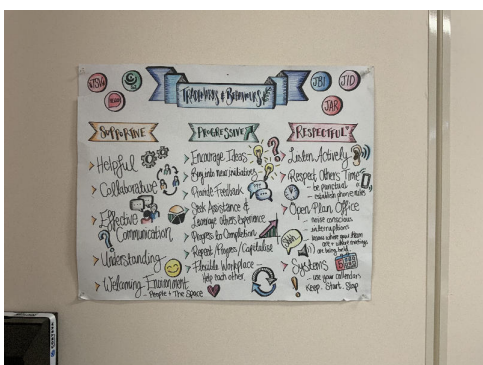 JBI
JID
JAR
& Behaviours
Supportive
Helpful
Collaborative
Effective
Communication
Understanding
Welcoming Environment
- People + The Space
Progressive
Encourage Ideas
Buy into New initiatives
Provide Feedback
Seek Assistance &
Leverage others Experience
Progress to Completion
Repeat / Progress / Capitalise
Flexible Workplace -
help each other
Respectful
Listen Actively
Respect Others Time
- be punctual
- establish phone rules
Open Plan Office
- noise conscious
- interruptions
- know where your team
are + where meetings
are being held.
Shhh..
Systems
- use your calendars
Keep. Start. Stop